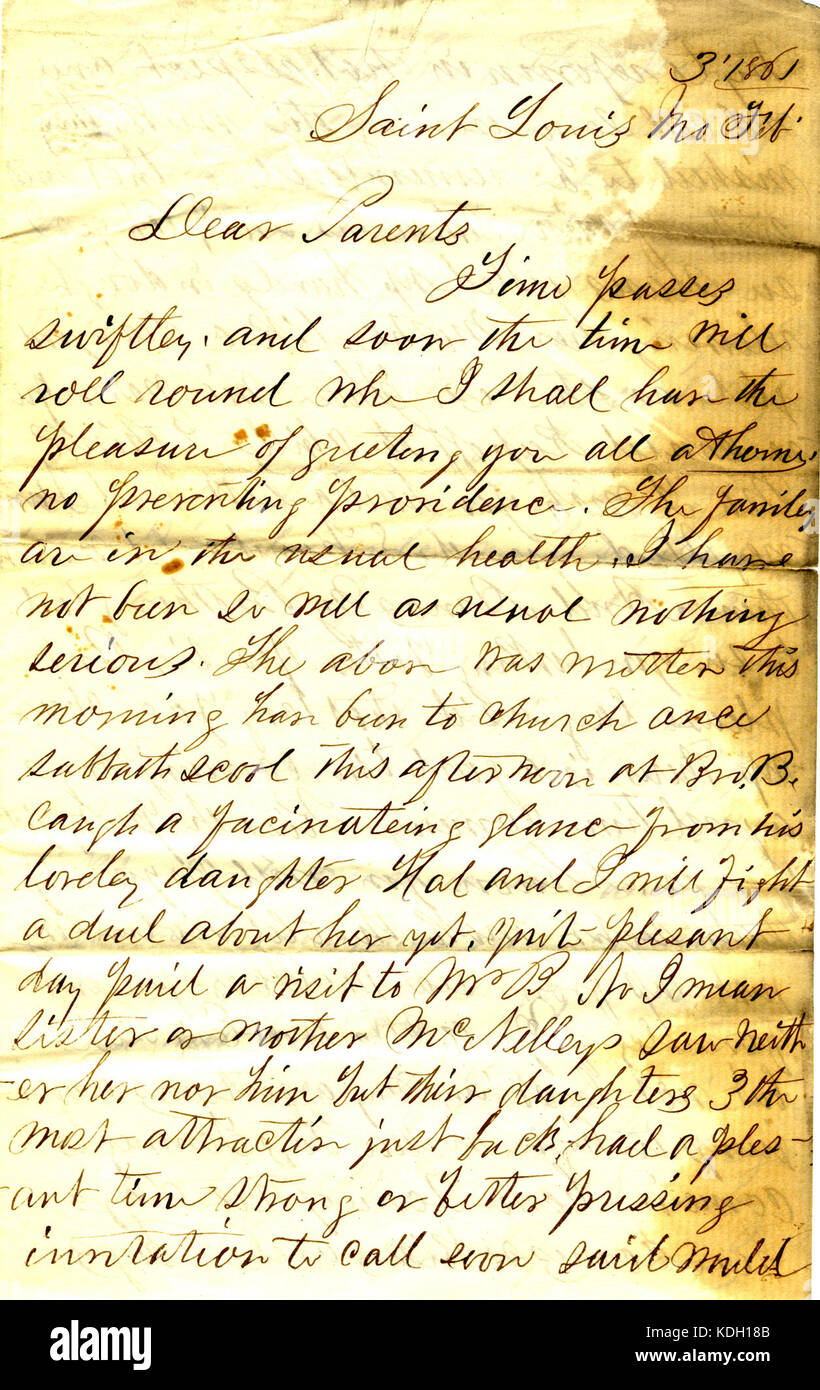 3' 1861
Saint Louis Mo Feb
Dear Parents
Time passes
swiftley. and soon the time will
roll round whe I shall have the
pleasure of greeting you all at home.
no preventing providence. The familey
are in the usual health, I have
not been so well as usual nothing
serious. The above was written this
morning have been to church once
sabbath scool this afternoon at Bro. B.
caugh a facinateing glance from his
loveley daughter Hal and I will fight
a duel about her yet. quite plesant
day paid a visit to Mr B No I mean
sister or mother McNelleys saw neith
-er her nor him but their daughters 3 the
most attractive just back, had a ples-
-ant time strong or better pressing
invitation to call soon said would
alamy
a
alamy stock photo
KDH18B
www.alamy.com